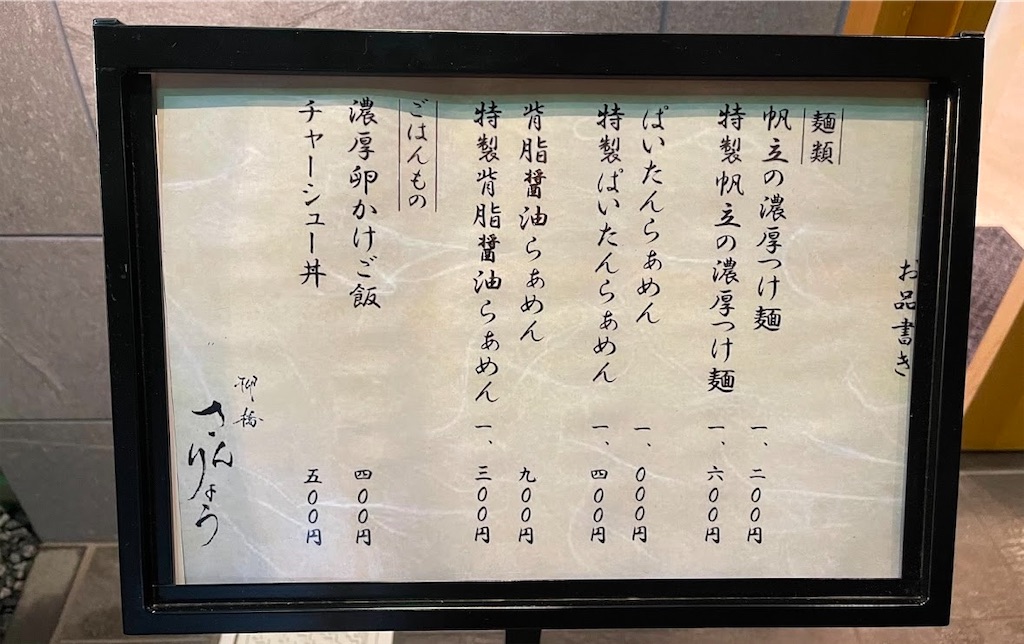 お品書き
麺類
帆立の濃厚つけ麺 一、二〇〇円
特製帆立の濃厚つけ麺 一、六〇〇円
ぱいたんらぁめん 一、〇〇〇円
特製ぱいたんらぁめん 一、四〇〇円
背脂醤油らぁめん 九〇〇円
特製背脂醤油らぁめん 一、三〇〇円
ごはんもの
濃厚卵かけご飯 四〇〇円
チャーシュー丼 五〇〇円
柳橋
さんりょう